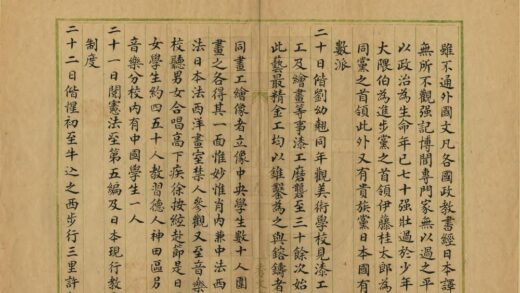 雖不通外國文凡各國政教書經日本譯
無所不觀強記博聞專門家無以過之平
以政治為生命年已七十強壯過於少年
大隈伯為進步黨之首領伊藤桂太郎為
同黨之首領此外又有貴族黨日本國有
數派
二十日偕劉幼同年觀美術學校見漆工
工及繪畫等事漆工磨礱至三十餘次始
此藝最精金工均以錐鑿為之與鎔鑄者
同畫工繪像者立像中央學生數十人圍
畫之各得其一面惟妙惟肖內兼中法西
法日本法西洋畫室禁人參觀又至音樂
校聽男女合唱高下疾徐按絃赴節是日
女學生約四五十人教習德人神田區另
音樂分校內有中國學生一人
二十一日閱憲法至第五編及日本現行教
制度
二十二日偕惺初至牛込之西步行三里許